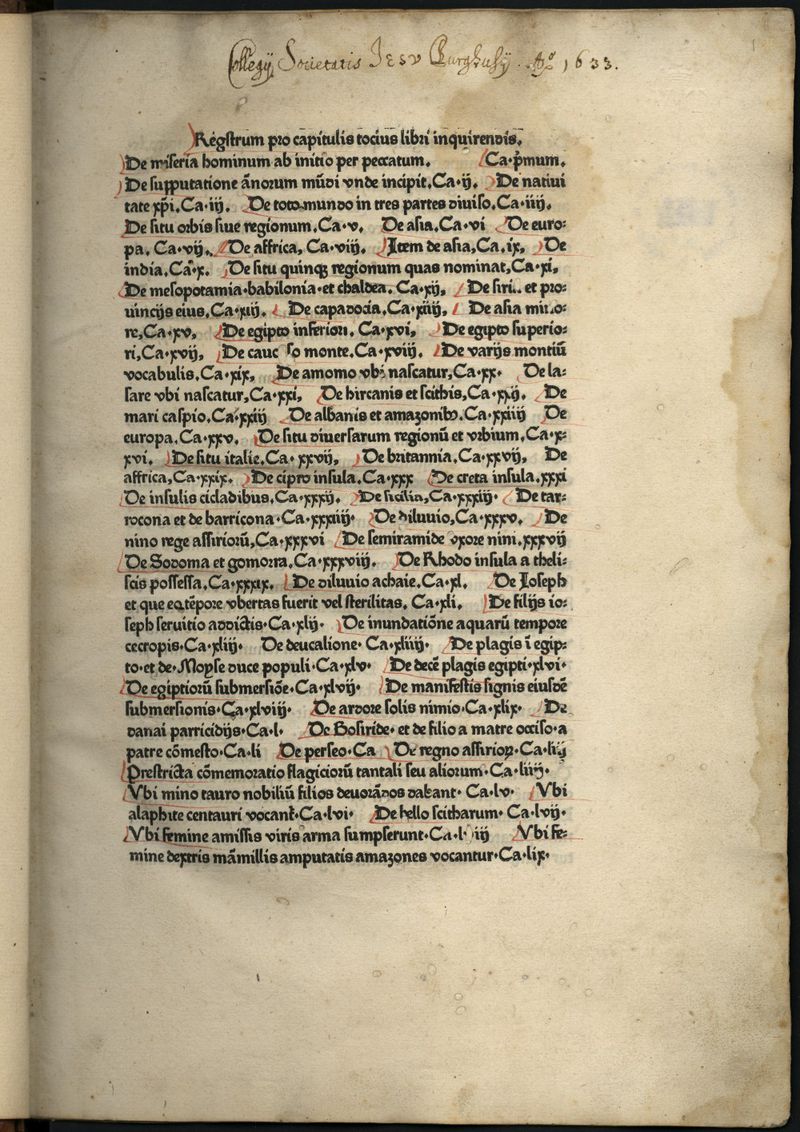 Collegij Societatis Jesu Burghusij. Aº 1633.
Registrum pro capitulis tocius libri inquirendis.
De miseria hominum ab initio per peccatum. Ca·p̄mum.
De supputatione ānorum mūdi vnde incipit. Ca·ij. De natiui
tate xp̄i. Ca·iij. De toto mundo in tres partes diuiso. Ca·iiij.
De situ orbis siue regionum. Ca·v. De asia. Ca·vi De euro⸗
pa. Ca·vij. De affrica, Ca·viij. Item de asia, Ca. ix, De
india. Ca·x. De situ quinqꝫ regionum quas nominat, Ca·xi,
De mesopotamia·babilonia·et chaldea. Ca·xij, De siri.. et pro⸗
uincijs eius, Ca·xiij. De capadocia. Ca·xiiij, De asia mino⸗
re, Ca·xv, De egipto inferiori. Ca·xvi, De egipto superio⸗
ri, Ca·xvij, De cauc so monte. Ca·xviij. De varijs montiū
vocabulis. Ca·xix, De amomo vbi nascatur, Ca·xx· De la⸗
sare vbi nascatur, Ca·xxi, De hircanis et scithis, Ca·xxij. De
mari caspio. Ca·xxiij De albanis et amazonibꝰ. Ca·xxiiij De
europa. Ca·xxv. De situ diuersarum regionū et vrbium, Ca·x⸗
xvi. De situ italie. Ca·xxvij, De britannia. Ca·xxvij, De
affrica, Ca·xxix. De cipro insula. Ca·xxx De creta insula. xxxi
De insulis cicladibus. Ca·xxxij. De sicilia, Ca·xxxiij· De tar⸗
rocona et de barricona·Ca·xxxiiij· De diluuio, Ca·xxxv. De
nino rege assiriorū, Ca·xxxvi De semiramide vxore nini. xxxvij
De Sodoma et gomorra. Ca·xxxviij. De Rhodo insula a theli⸗
scis possessa. Ca·xxxix. De diluuio achaie. Ca·xl. De Joseph
et que eo tēpore vbertas fuerit vel sterilitas. Ca·xli. De filijs io⸗
seph seruitio addictis·Ca·xlij· De inundatiōne aquarū tempore
cecropis·Ca·xliij· De deucalione· Ca·xliiij· De plagis ī egip⸗
to·et de·Moyse duce populi·Ca·xlv· De decē plagis egipti·xlvi·
De egiptiorū submersiōe·Ca·xlvij· De manifestis signis eiusdē
submersionis·Ca·xlviij· De ardore solis nimio·Ca·xlix· De
danai parricidijs·Ca·l· De Bosiride· et de filio a matre occiso·a
patre cōmesto·Ca·li De perseo·Ca De regno assirioꝝ·Ca·liij
Prestricta cōmemoratio flagiciorū tantali seu aliorum·Ca·liiij·
Vbi mino tauro nobiliū filios deuorādos dabant· Ca·lv· Vbi
alaphite centauri vocant̄·Ca·lvi· De bello scitharum· Ca·lvij·
Vbi femine amissis viris arma sumpserunt·Ca·l iij Vbi fe⸗
mine dextris māmillis amputatis amazones vocantur·Ca·lix·